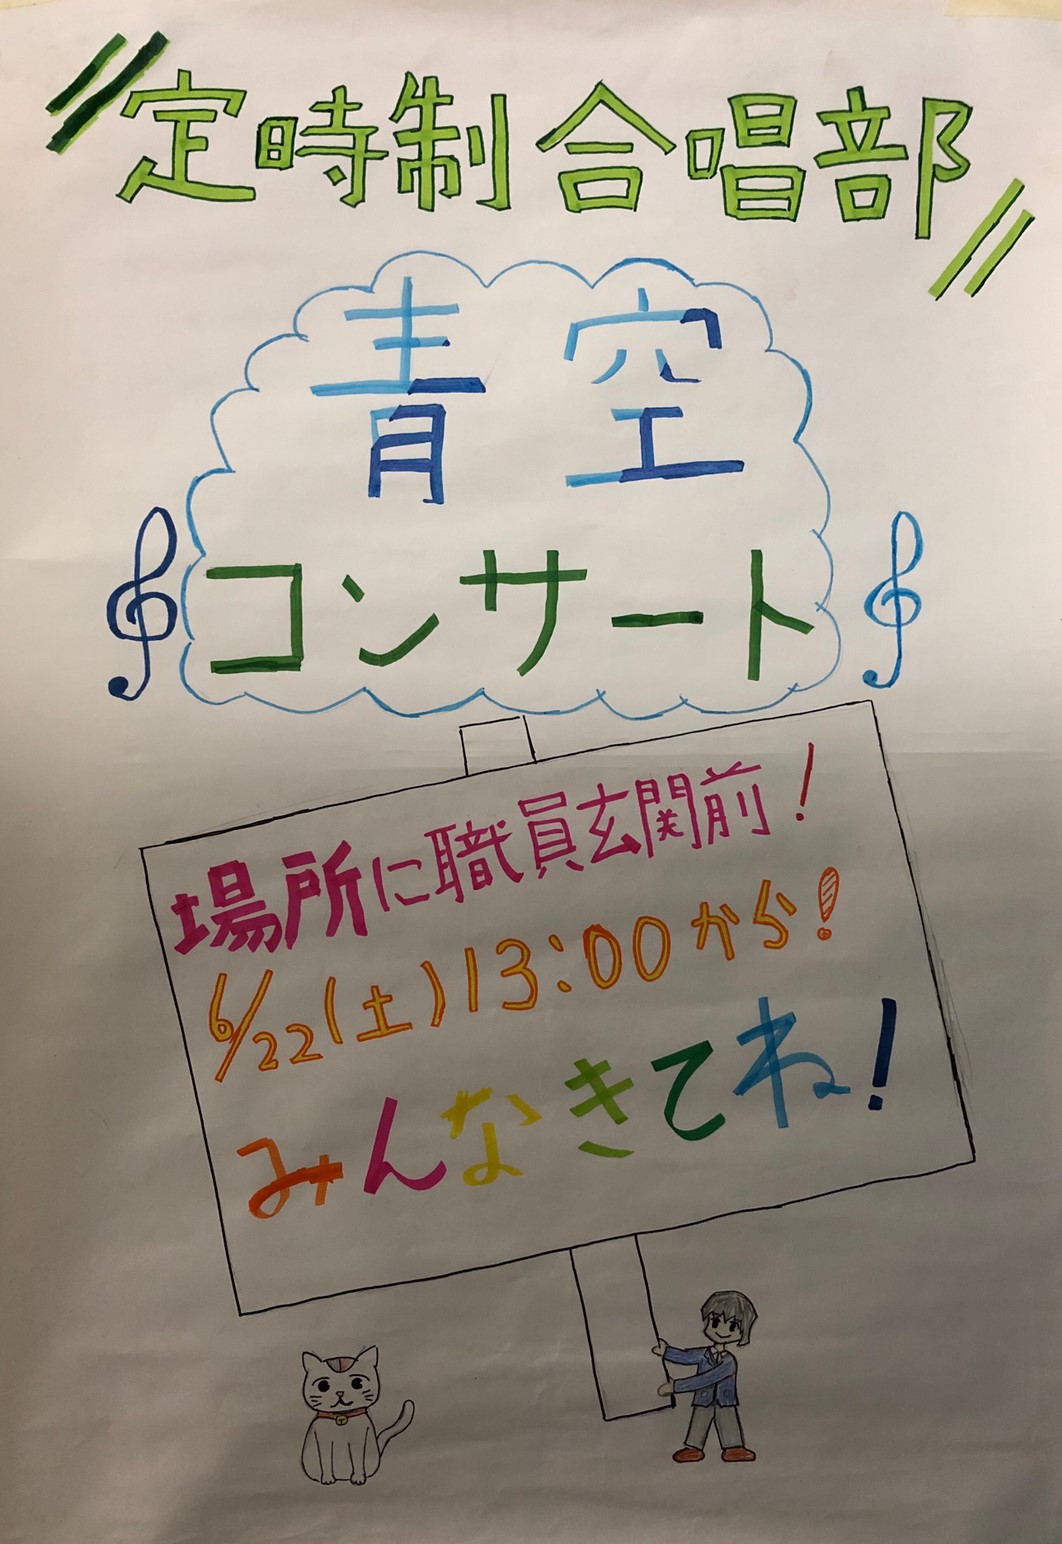 定時制合唱部
青空
コンサート
場所に職員玄関前!
6/22(土)13:00から!
みんなきてね!